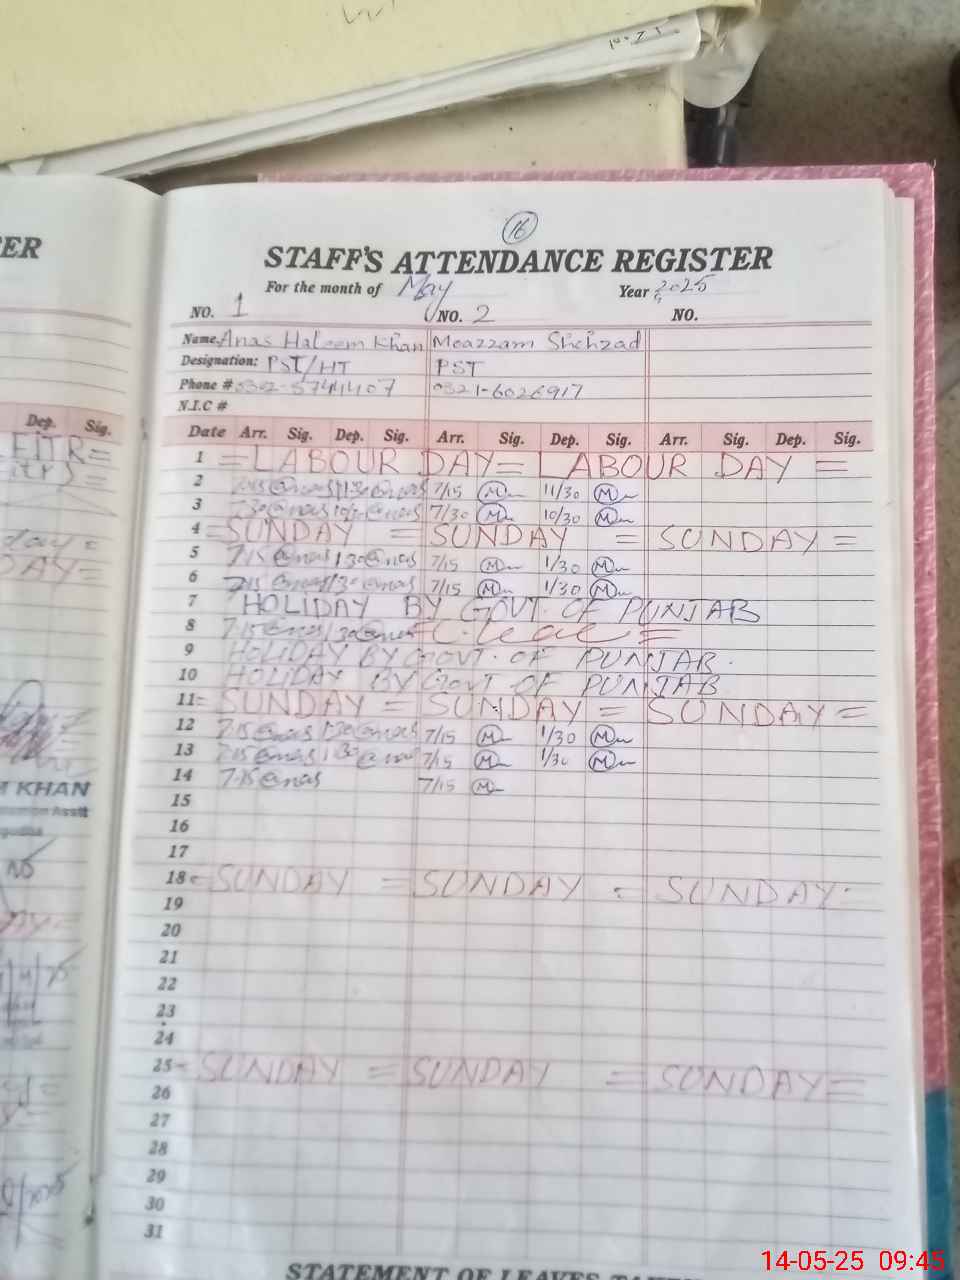 16
STAFF'S ATTENDANCE REGISTER
For the month of May Year 2025
NO. 1 NO. 2 NO.
Name. Anas Haleem Khan Moazzam Shehzad
Designation: PST/HT PST
Phone # 0321-6026917
N.I.C #
Date Arr. Sig. Dep. Sig. Arr. Sig. Dep. Sig. Arr. Sig. Dep. Sig.
1 = LABOUR DAY = LABOUR DAY =
2 7:15 @nas 11:30 @nas 7/15 M 11/30 M
3 7:30 @nas @nas 7/30 M 10/30 M
4 = SUNDAY = SUNDAY = SUNDAY =
5 7:15 @nas 1:30 @nas 7/15 M 1/30 M
6 7:15 @nas 1:30 @nas 7/15 M 1/30 M
7 HOLIDAY BY GOVT. OF PUNJAB
8 7:15 @nas 1:30 @nas = C. leave =
9 HOLIDAY BY GOVT. OF PUNJAB.
10 HOLIDAY BY GOVT OF PUNJAB
11 = SUNDAY = SUNDAY = SUNDAY =
12 7:15 @nas 1:30 @nas 7/15 M 1/30 M
13 7:15 @nas 1:30 @nas 7/15 M 1/30 M
14 7:15 @nas 7/15 M
15
16
17
18 = SUNDAY = SUNDAY = SUNDAY =
19
20
21
22
23
24
25 = SUNDAY = SUNDAY = SUNDAY =
26
27
28
29
30
31
ER
Dep. Sig.
KHAN
NO
14-05-25 09:45